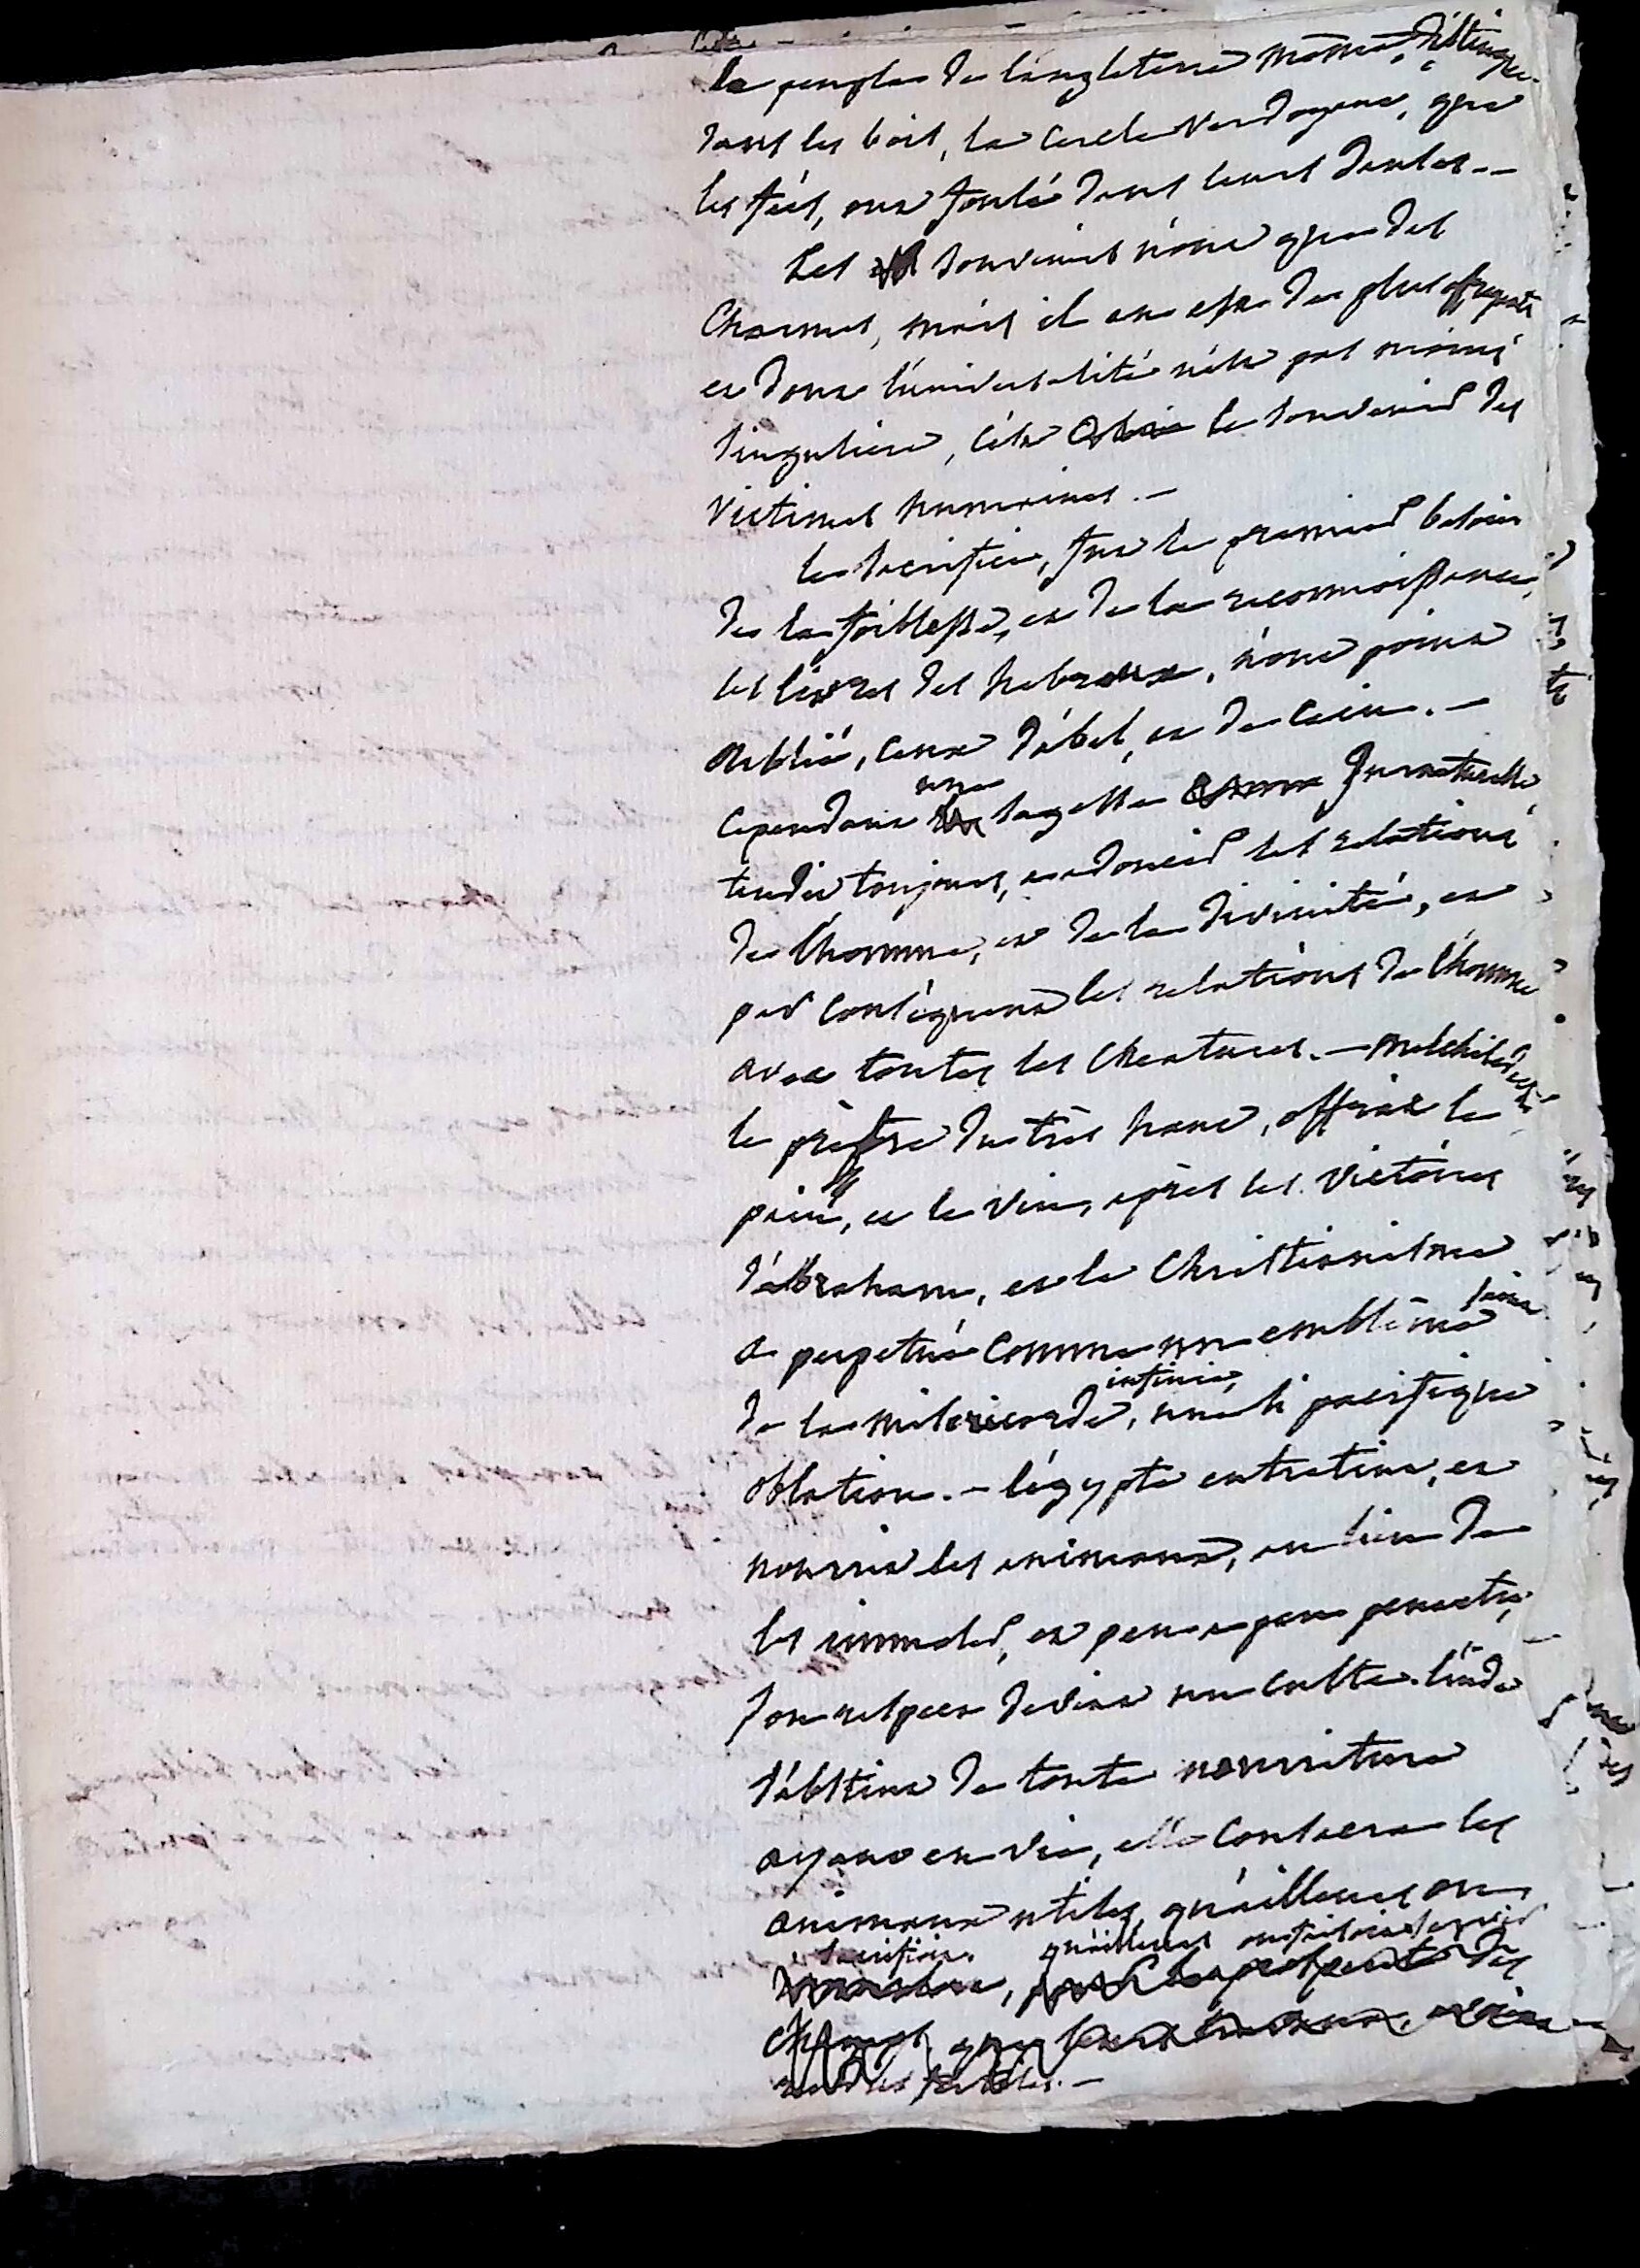 le peuple de l'angleterre montre, distingue
dans les bois, le cercle verdoyant, que
les fées, ont foulé dans leurs danses --
Ces souvenirs n'ont que des
Charmes, mais il en est de plus affligeants
et dont l'universalité n'est pas moins
singuliere, c'est le souvenir des
Victimes humaines. —
le sacrifice, fut le premier besoin
de la foiblesse, et de la reconnoissance,
les livres des hebreux, n'ont point
oublié, ceux d'abel, et de Cain. —
une
cependant sagesse surnaturelle,
tendit toujours, a adoucir les relations
de l'homme, et de la divinité, et
par conséquent les relations de l'homme
avec toutes les Creatures. — Melchisedech
le prêtre du très haut, offrit le
pain, et le vin, après les victoires
d'abraham, et le Christianisme
saint
a perpetué comme un emblême
infinie,
de la misericorde, une si pacifique
oblation. — l'égypte entretint, et
nourrit les animaux, au lieu de
les immoler, et peu a peu
son respect devint un culte. l'inde
s'abstint de toute nourriture
ayant eu vie, elle consacra les
animaux utiles, qu'ailleurs on
sacrifioit. qu'ailleurs on faisoit servir
des